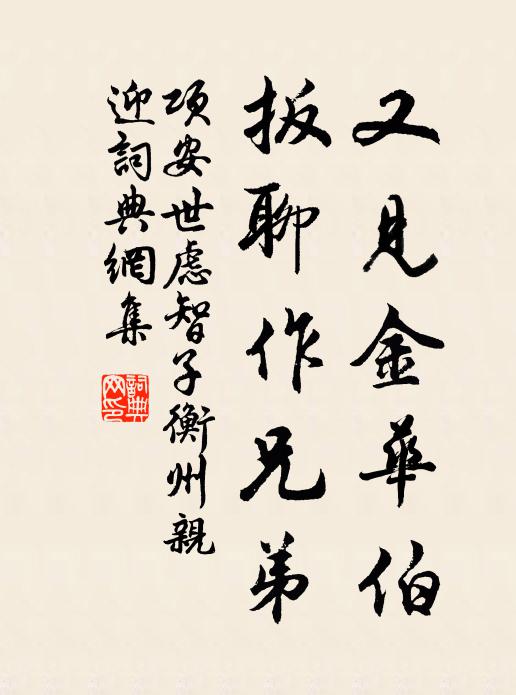 又見金華伯
扳聊作兄弟
項安世慮智子衡州親
迎詞典網集
詞典
网印